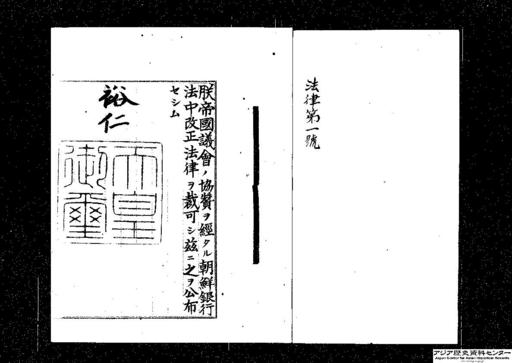 法律第一號
朕帝國議會ノ協贊ヲ經タル朝鮮銀行
法中改正法律ヲ裁可シ玆ニ之ヲ公布
セシム
裕仁
天皇
御璽
アジア歴史資料センター
Japan Center for Asian Historical Records